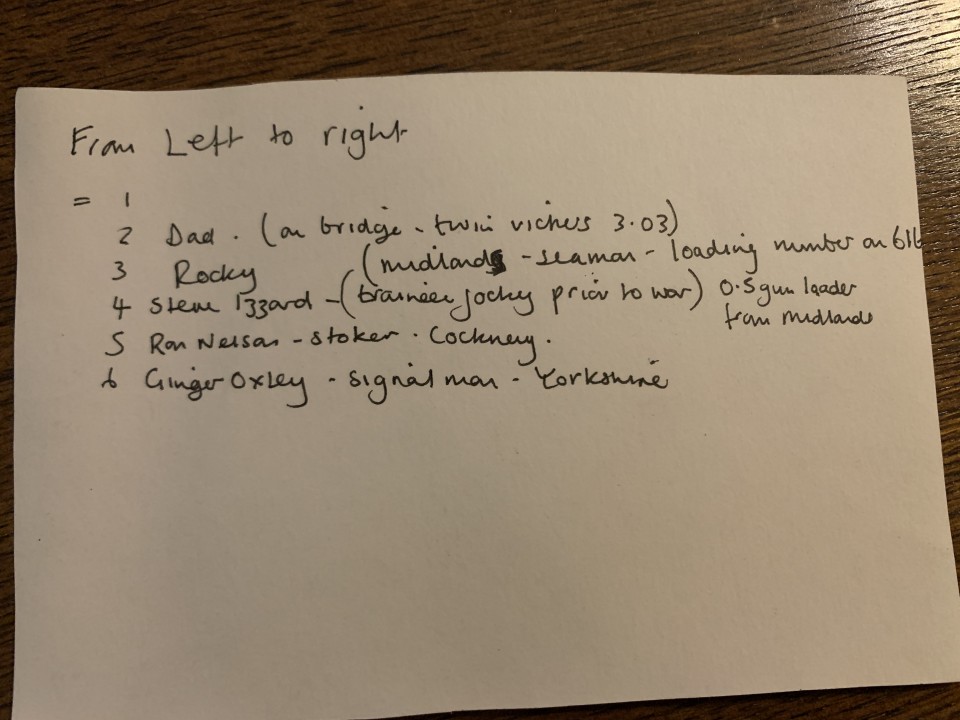 From Left to right
= 1
2 Dad. (on bridge - twin vickers 3.03)
3 Rocky (midlands - seaman - loading number on 6lb
4 Steve Izzard - (trainee jocky prior to war) 0.5 gun loader
from midlands
5 Ron Nelson - stoker. Cockney.
6 Ginger Oxley - signal man - Yorkshire